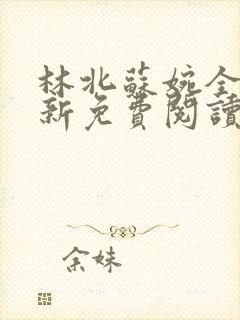 林北蘇婉全
新免費閱讀
余妹